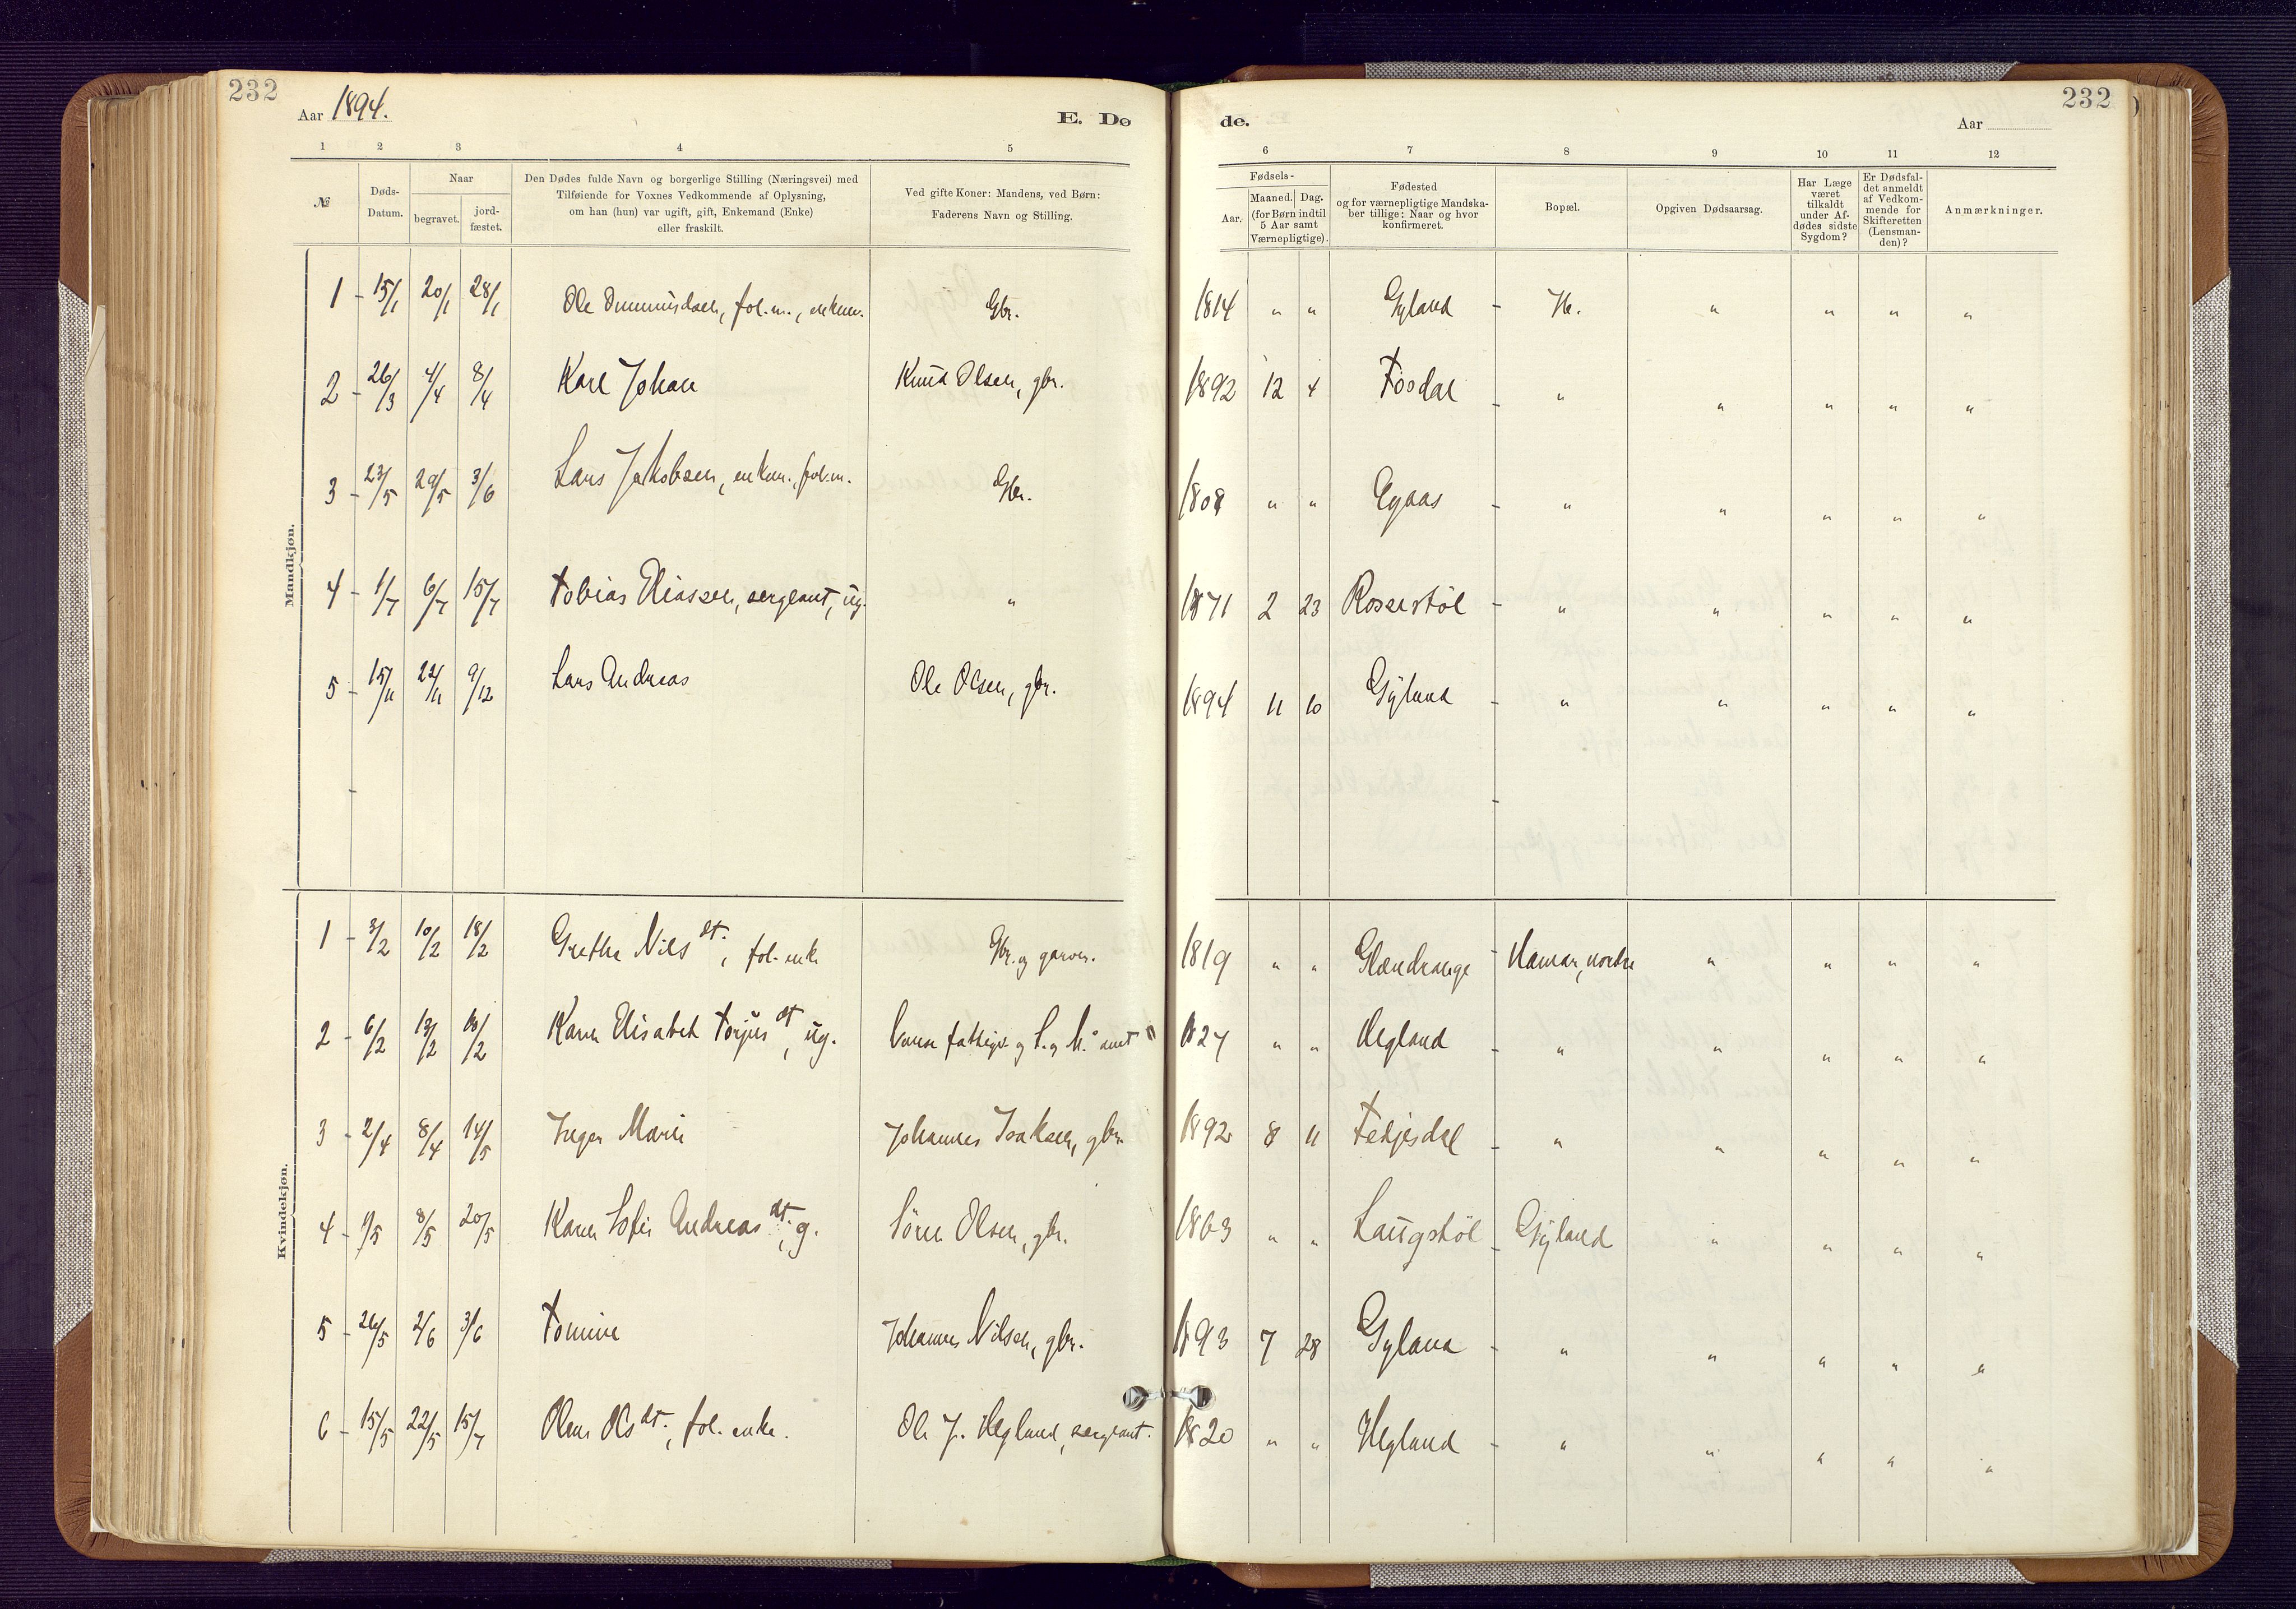 232
Aar 1894.
E. Dø
de.
Aar
232
1 2 3 4 5
6 7 8 9 10 11 12
№
Døds-
Datum.
Naar
begravet.
jord-
fæstet.
Den Dødes fulde Navn og borgerlige Stilling (Næringsvei) med
Tilføiende for Voxnes Vedkommende af Oplysning,
om han (hun) var ugift, gift, Enkemand (Enke)
eller fraskilt.
Ved gifte Koner: Mandens, ved Børn:
Faderens Navn og Stilling.
Fødsels-
Aar.
Maaned. Dag.
(for Børn indtil
5 Aar samt
Værnepligtige).
Fødested
og for værnepligtige Mandska-
ber tillige: Naar og hvor
konfirmeret.
Bopæl.
Opgiven Dødsaarsag.
Har Læge
været
tilkaldt
under Af-
dødes sidste
Sygdom?
Er Dødsfal-
det anmeldt
af Vedkom-
mende for
Skifteretten
(Lensman-
den)?
Anmærkninger.
Mandkjøn.
1 - 15/1 20/1 28/1 Ole Ommundsen, fol.m., enkem. Gbr. 1814 " " Gyland - " " " "
2 - 26/3 4/4 8/4 Karl Johan Knud Olsen, gbr. 1892 12 4 Fosdal - " " " " "
3 - 23/5 29/5 3/6 Lars Jakobsen, enkm., fol.m. Gbr. 1808 " " Egaas - " " " " "
4 - 1/7 6/7 15/7 Tobias Eliassen, sergeant, ug. " 1871 2 23 Rossestøl - " " " " "
5 - 15/11 22/11 9/12 Lars Andreas Ole Olsen, gbr. 1894 11 10 Gyland - " " " " "
Kvindekjøn.
1 - 3/2 10/2 18/2 Grethe Nilsdt., fol. enke Gbr. og garver. 1819 " " Glændrange - Hamar, nordre " " " "
2 - 6/2 13/2 18/2 Karen Elisabet Torjusdt, ug. fattigv. og L. og M. amt 1827 " " Hegland - " " " " "
3 - 2/4 8/4 14/5 Inger Marie Johannes Isaksen, gbr. 1892 8 11 Fedjesdal - " " " " "
4 - 1/5 8/5 20/5 Karen Sofie Andreasdt., g. Sören Olsen, gbr. 1863 " " Laugstøl - Gyland " " " "
5 - 26/5 2/6 3/6 Tomine Johannes Nilsen, gbr. 1893 7 28 Gyland - " " " " "
6 - 15/5 22/5 15/7 Olene Olsdt., fol. enke. Ole J. Hegland, sergeant. 1820 " " Hegland - " " " " "